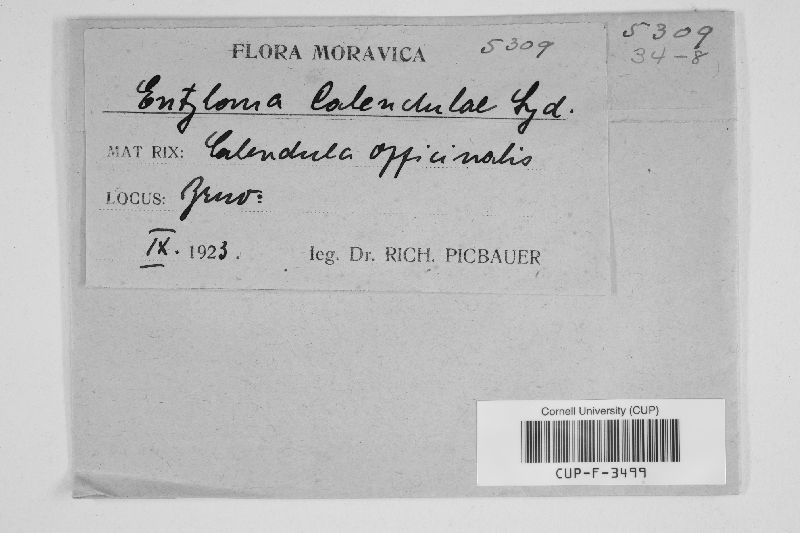 FLORA MORAVICA 5309
5309
34-8
Entyloma Calendulae Syd.
MATRIX: Calendula officinalis
LOCUS: Brno:
IX. 1923. leg. Dr. RICH. PICBAUER
Cornell University (CUP)
CUP-F-3499